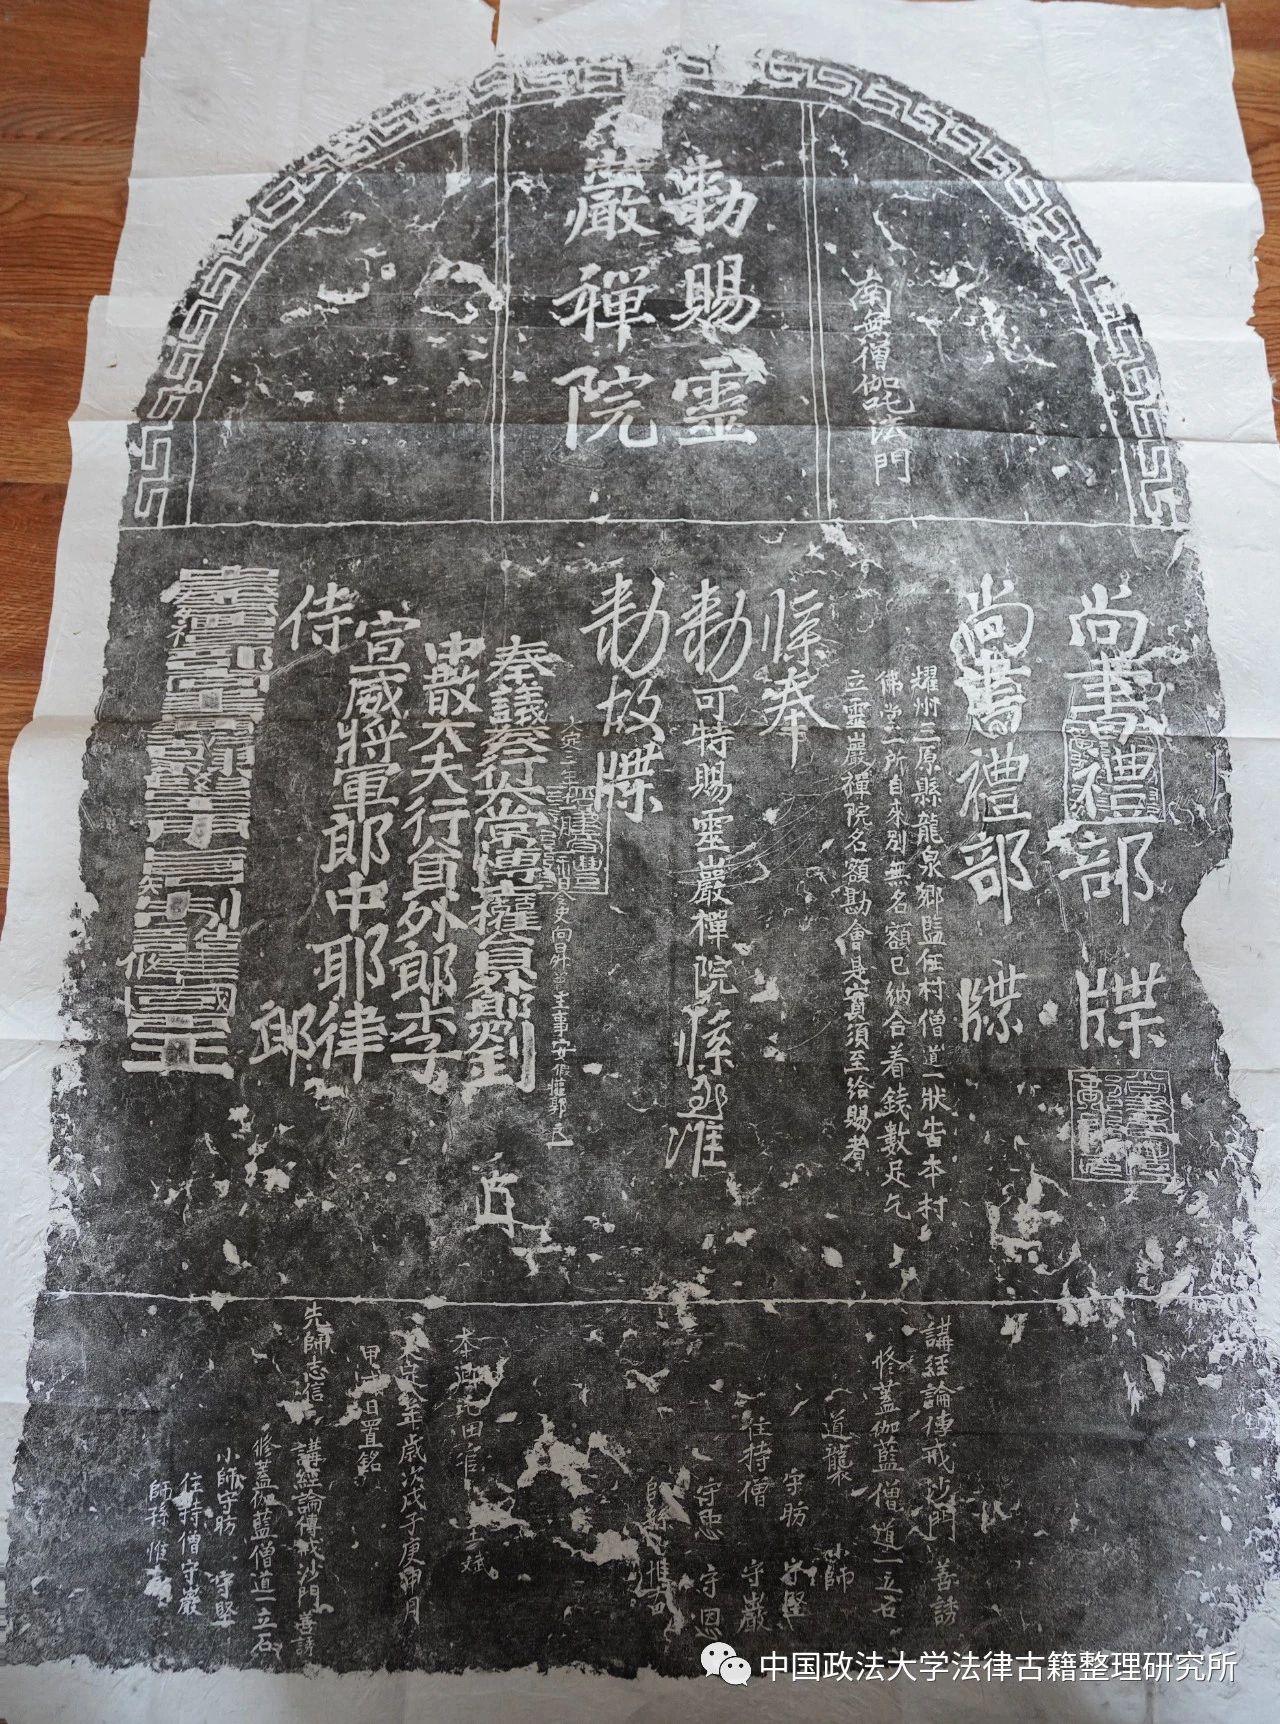 勅賜靈
嚴禪院
南無僧伽吒法門
尚書禮部 牒
尚書禮部 牒
耀州三原縣龍泉鄉監任村僧道一狀告本村
佛堂一所自來別無名額已納合着錢數足乞
立靈巖禪院名額勘會是實須至給賜者
牒奉
勅可特賜靈巖禪院牒至准
勅故牒
大定二年 月 日令史向昇 主事安假權郭
奉議大夫行太常博士權員外郎劉
中散大夫行員外郎李
宣威將軍郎中耶律
侍 郎
講經論傳戒沙門 善誘
修蓋伽藍僧道一立石
道襲 小師
守昉 守堅
住持僧 守巖
守忠 守恩
師孫 惟
本 田 官 斌
大定八年歲次戊子庚申月
甲 日置銘
先師志信 講經論傳戒沙門善誘
修蓋伽藍僧道一立石
小師守昉 守堅
住持僧守巖
師孫 惟
中国政法大学法律古籍整理研究所